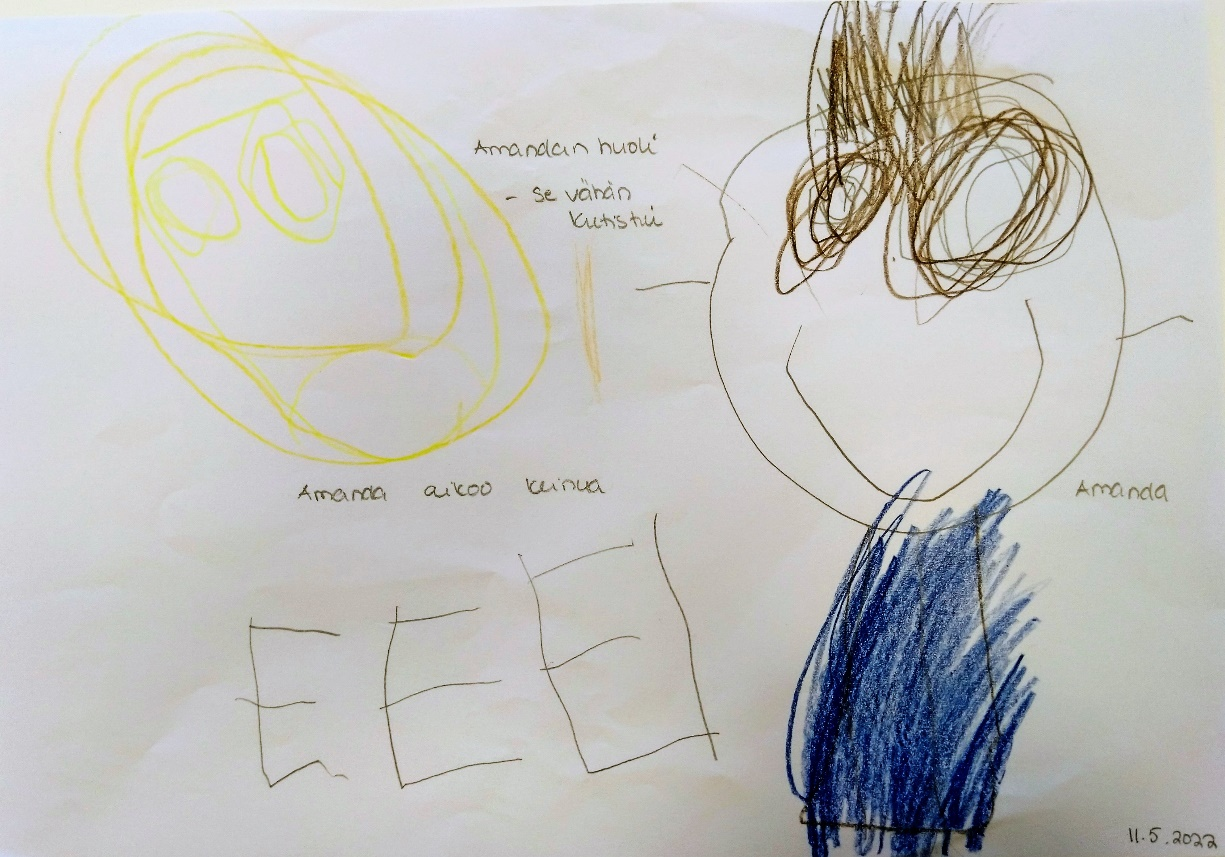 Amandan huoli
- se vähän
kutistui
Amanda aikoo keinua
Amanda
EEEI
11.5.2022